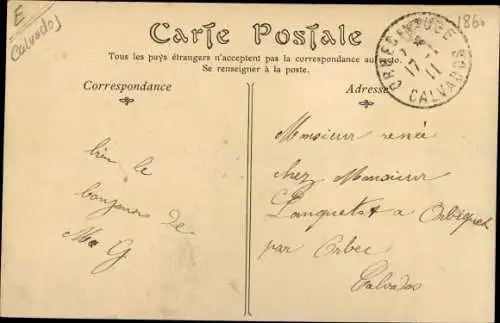 E
Calvados
186
Carte Postale
Tous les pays étrangers n'acceptent pas la correspondance au recto.
Se renseigner à la poste.
Correspondance
Adresse
ORBEC EN AUGE
17 -
11
CALVADOS
bien le
bonjour de
Me G
Monsieur renée
chez Monsieur
Lanquetot a Orbiquet
par Orbec
Calvados